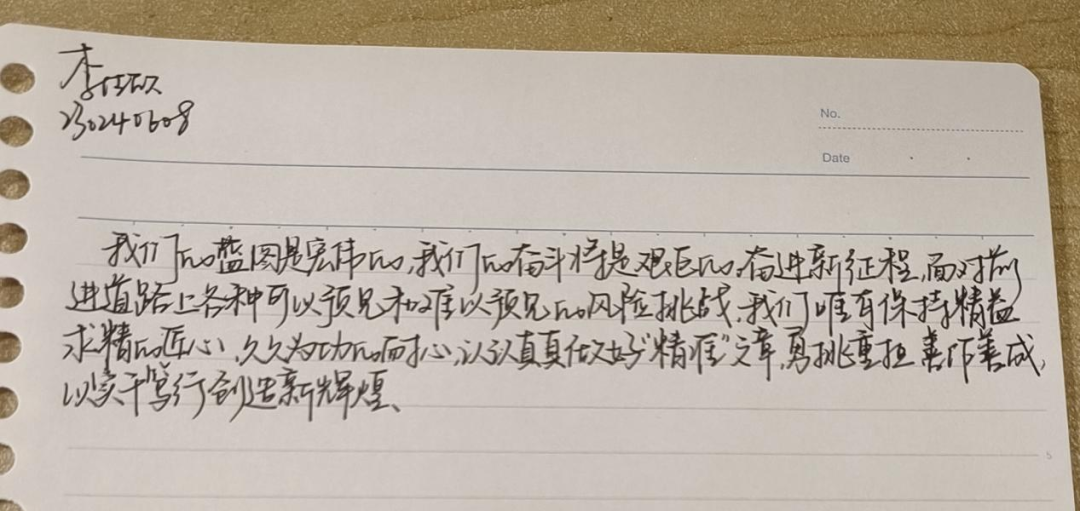 李
2302240608
No.
Date
我们的蓝图是宏伟的,我们的奋斗将是艰巨的。奋进新征程,面对前
进道路上各种可以预见和难以预见的风险挑战,我们唯有保持精益
求精的匠心,久久为功的耐心,认认真真做好“精准”文章,勇挑重担善作善成,
以实干笃行创造新辉煌、
5